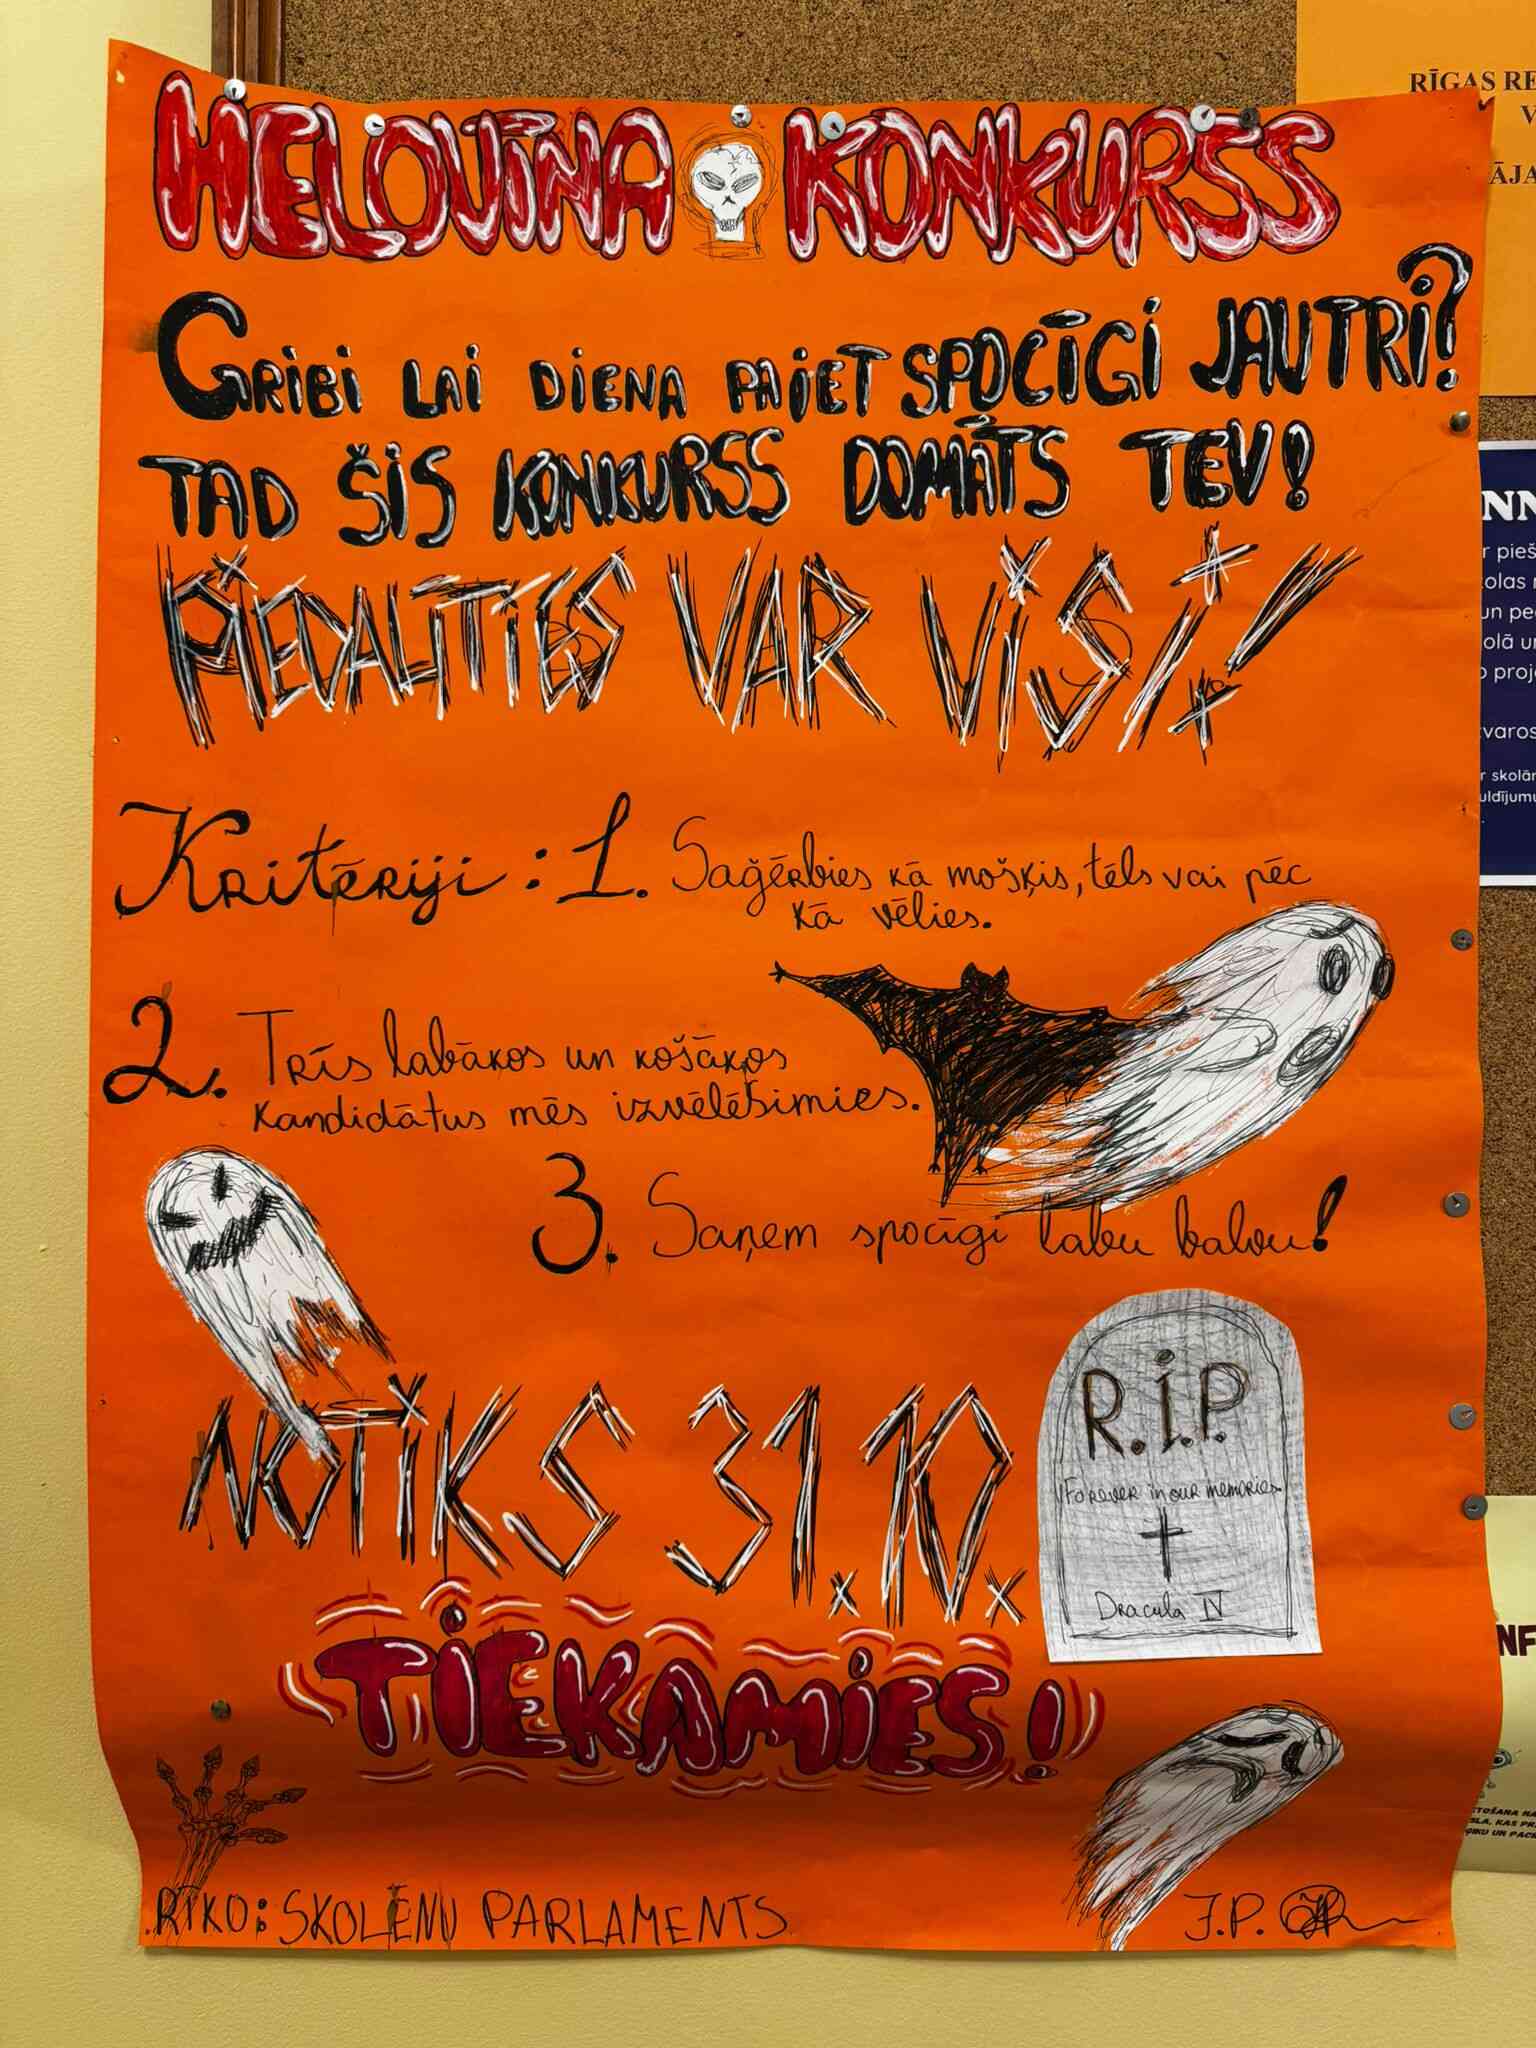 HELOVĪNA KONKURSS
GRIBI LAI DIENA PAIET SPOCĪGI JAUTRI?
TAD ŠIS KONKURSS DOMĀTS TEV!
PIEDALĪTIES VAR VISI!
Kritēriji: 1. Saģērbies kā mošķis, tēls vai pēc
kā vēlies.
2. Trīs labākos un košākos
kandidātus mēs izvēlēsimies.
3. Saņem spocīgi labu balvu!
NOTIKS 31.10.
R.I.P.
Forever in our memories
Dracula IV
TIEKAMIES!
RĪKO: SKOLĒNU PARLAMENTS
J.P.
RĪGAS RE
V
ĀJA
NN
r pieš
olas
un pe
olā u
proj
tvaros
r skolār
uldījumu
NF